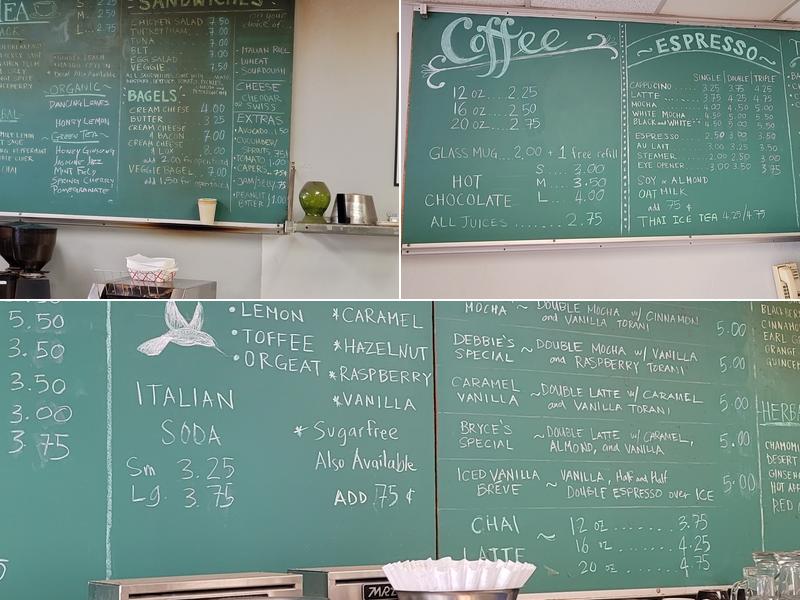 TEA
S ... 2.25
M ... 2.50
L ... 2.75
Decaf Also Available
~ORGANIC~
DANCING LEAVES
HONEY LEMON
GREEN TEA
HONEY GINSENG
JASMINE JAZZ
MINT FULLY
SPRING CHERRY
POMEGRANATE
SANDWICHES
CHICKEN SALAD 7.50
TURKEY/HAM 7.00
TUNA 7.00
BLT 7.00
EGG SALAD 7.00
VEGGIE 7.50
ALL SANDWICHES COME WITH MAYO,
MUSTARD, LETTUCE, TOMATO, PICKLES,
BAGELS
CREAM CHEESE 4.00
BUTTER 3.25
CREAM CHEESE
& BACON 7.00
CREAM CHEESE
& LOX 8.00
VEGGIE BAGEL 7.00
on your
choice of
•ITALIAN ROLL
•WHEAT
•SOURDOUGH
CHEESE
CHEDDAR
SWISS
EXTRAS
•AVOCADO 1.50
•CUCUMBER/
SPROUTS .75
•TOMATO
•CAPERS
•JAM/JELLY .75
•PEANUT
BUTTER 1.00
Coffee
12 oz .... 2.25
16 oz ... 2.50
20 oz ... 2.75
GLASS MUG...2.00 + 1 free refill
HOT
CHOCOLATE
S ... 3.00
M ... 3.50
L ... 4.00
ALL JUICES ....... 2.75
~ESPRESSO~
SINGLE | DOUBLE | TRIPLE
CAPPUCINO ..... 3.25 3.75 4.25
LATTE ..... 3.75 4.25 4.75
MOCHA ..... 4.00 4.50 5.00
WHITE MOCHA 4.50 5.00 5.50
BLACK and WHITE 4.50 5.00 5.50
ESPRESSO ..... 2.50 3.00 3.50
AU LAIT ..... 3.00 3.25 3.50
STEAMER ..... 2.00 2.50 3.00
EYE OPENER ..... 3.00 3.50 3.75
SOY or ALMOND
OAT MILK
add 75 ¢
THAI ICE TEA 4.25/4.75
5.50
3.50
3.50
3.00
3.75
•LEMON
•TOFFEE
•ORGEAT
*CARAMEL
*HAZELNUT
*RASPBERRY
*VANILLA
* Sugarfree
Also Available
ADD 75 ¢
ITALIAN
SODA
Sm 3.25
Lg. 3.75
MOCHA ~ DOUBLE MOCHA w/ CINNAMON
and VANILLA TORANI 5.00
DEBBIE'S
SPECIAL ~ DOUBLE MOCHA w/ VANILLA
and RASPBERRY TORANI 5.00
CARAMEL
VANILLA ~ DOUBLE LATTE w/ CARAMEL
and VANILLA TORANI 5.00
BRYCE'S
SPECIAL ~ DOUBLE LATTE w/ CARAMEL,
ALMOND, and VANILLA 5.00
ICED VANILLA
BREVE ~ VANILLA, Half and Half
DOUBLE ESPRESSO over ICE 5.00
CHAI
LATTE ~
12 oz ....... 3.75
16 oz ....... 4.25
20 oz ....... 4.75
EARL G
ORANGE
QUINCE
HERBA
CHAMOMI
DESERT
GINSENG
HOT AP
RED